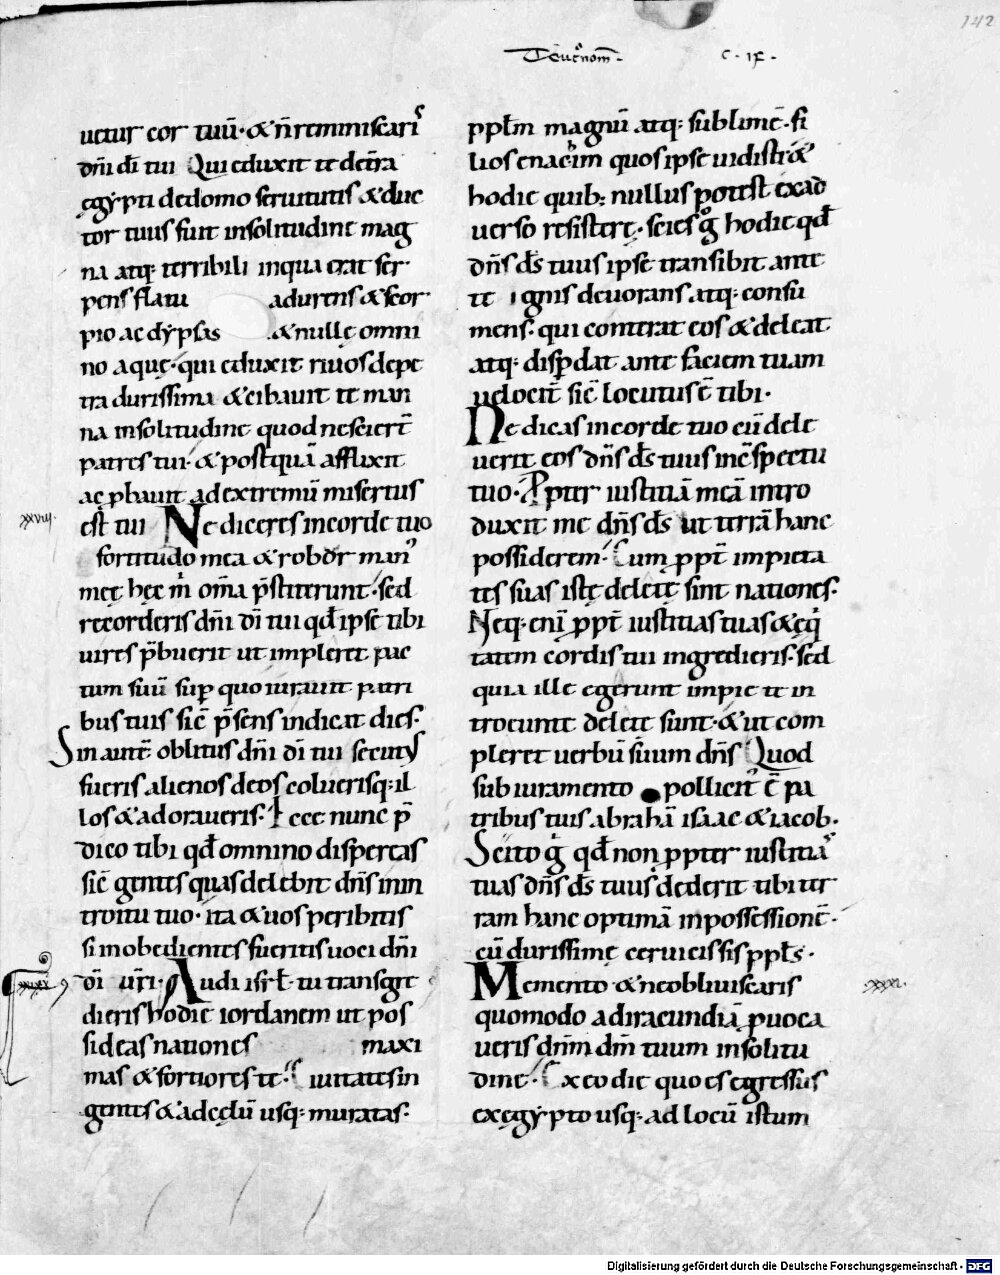 142
Deut͛nom̅. c. ix.
uetur cor tuū. & n̄ reminiscaris
dn̄i dī tui Qui eduxit te de t̄ra
ęgypti de domo seruitutis & duc
tor tuus fuit in solitudine mag
na atq; terribili in qua erat ser
pens flatu adurens & scor
pio ac dypsas & nullę omni
no aquę. qui eduxit riuos de pe
tra durissima & cibauit te man
na in solitudine quod nescier̄t
patres tui. & postquā afflixit
ac ꝓbauit ad extremū misertus
est tui Ne diceres in corde tuo
xxviiii.
fortitudo mea & robor man᷒
meę hęc m̍ om̄a p̄stiterunt. sed
recorderis dn̄i dī tui qd̄ ipse tibi
uires p̄buerit ut impleret pac
tum suū sup̱ quo iurauit patri
bus tuis sic̄ p̄sens indicat dies.
Sin aut̄e oblitus dn̄i dī tui secutus
fueris alienos deos coluerisq; il
los & adoraueris. Ecce nunc p̄
dico tibi qd̄ omnino dispereas
sic̄ gentes quas delebit dn̄s in in
troitu tuo. ita & uos peribitis
si inobedientes fueritis uoci dn̄i
dī ur̄i. Audi isrł. tu transgre
xxx
dieris hodie iordanem ut pos
sideas nationes maxi
mas & fortiores te. Ciuitates in
gentes & ad cęlū usq; muratas.
pp̄lm magnū atq; sublime. fi
lios enachim quos ipse uidisti &
hodie quib; nullus potest ex ad
uerso resistere. Scies g̊ hodie qd̄
dn̄s ds̄ tuus ipse transibit ante
te ignis deuorans atq; consu
mens. qui conterat eos & deleat
atq; disp̱dat ante faciem tuam
uelocit̄ sic̄ locutus ē tibi.
Ne dicas in corde tuo cū dele
uerit eos dn̄s ds̄ tuus in c̄spectu
tuo. Ꝓpter iustitiā meā intro
duxit me dn̄s ds̄ ut terrā hanc
possiderem. Cum ꝓpt̄ impieta
tes suas istę deletę sint nationes.
Neq; eni ꝓpt̄ iustitias tuas & ęq̍
tatem cordis tui ingredieris. sed
quia ille egerunt impie te in
troeunte deletę sunt. & ut com
pleret uerbū suum dn̄s Quod
sub iuramento pollicit᷒ ē pa
tribus tuis abrahā isaac & iacob.
Scito g̊ qd̄ non ꝓpter iustitias
tuas dn̄s ds̄ tuus dederit tibi ter
ram hanc optimā in possessionē.
cū durissimę ceruicis sis pp̄ls.
Memento & ne obliuiscaris
xxxi.
quomodo ad iracundiā ꝓuoca
ueris dn̄m dm̄ tuum in solitu
dine. Ex eo die quo es egressus
ex ęgypto usq; ad locū istum
Digitalisierung gefördert durch die Deutsche Forschungsgemeinschaft - DFG